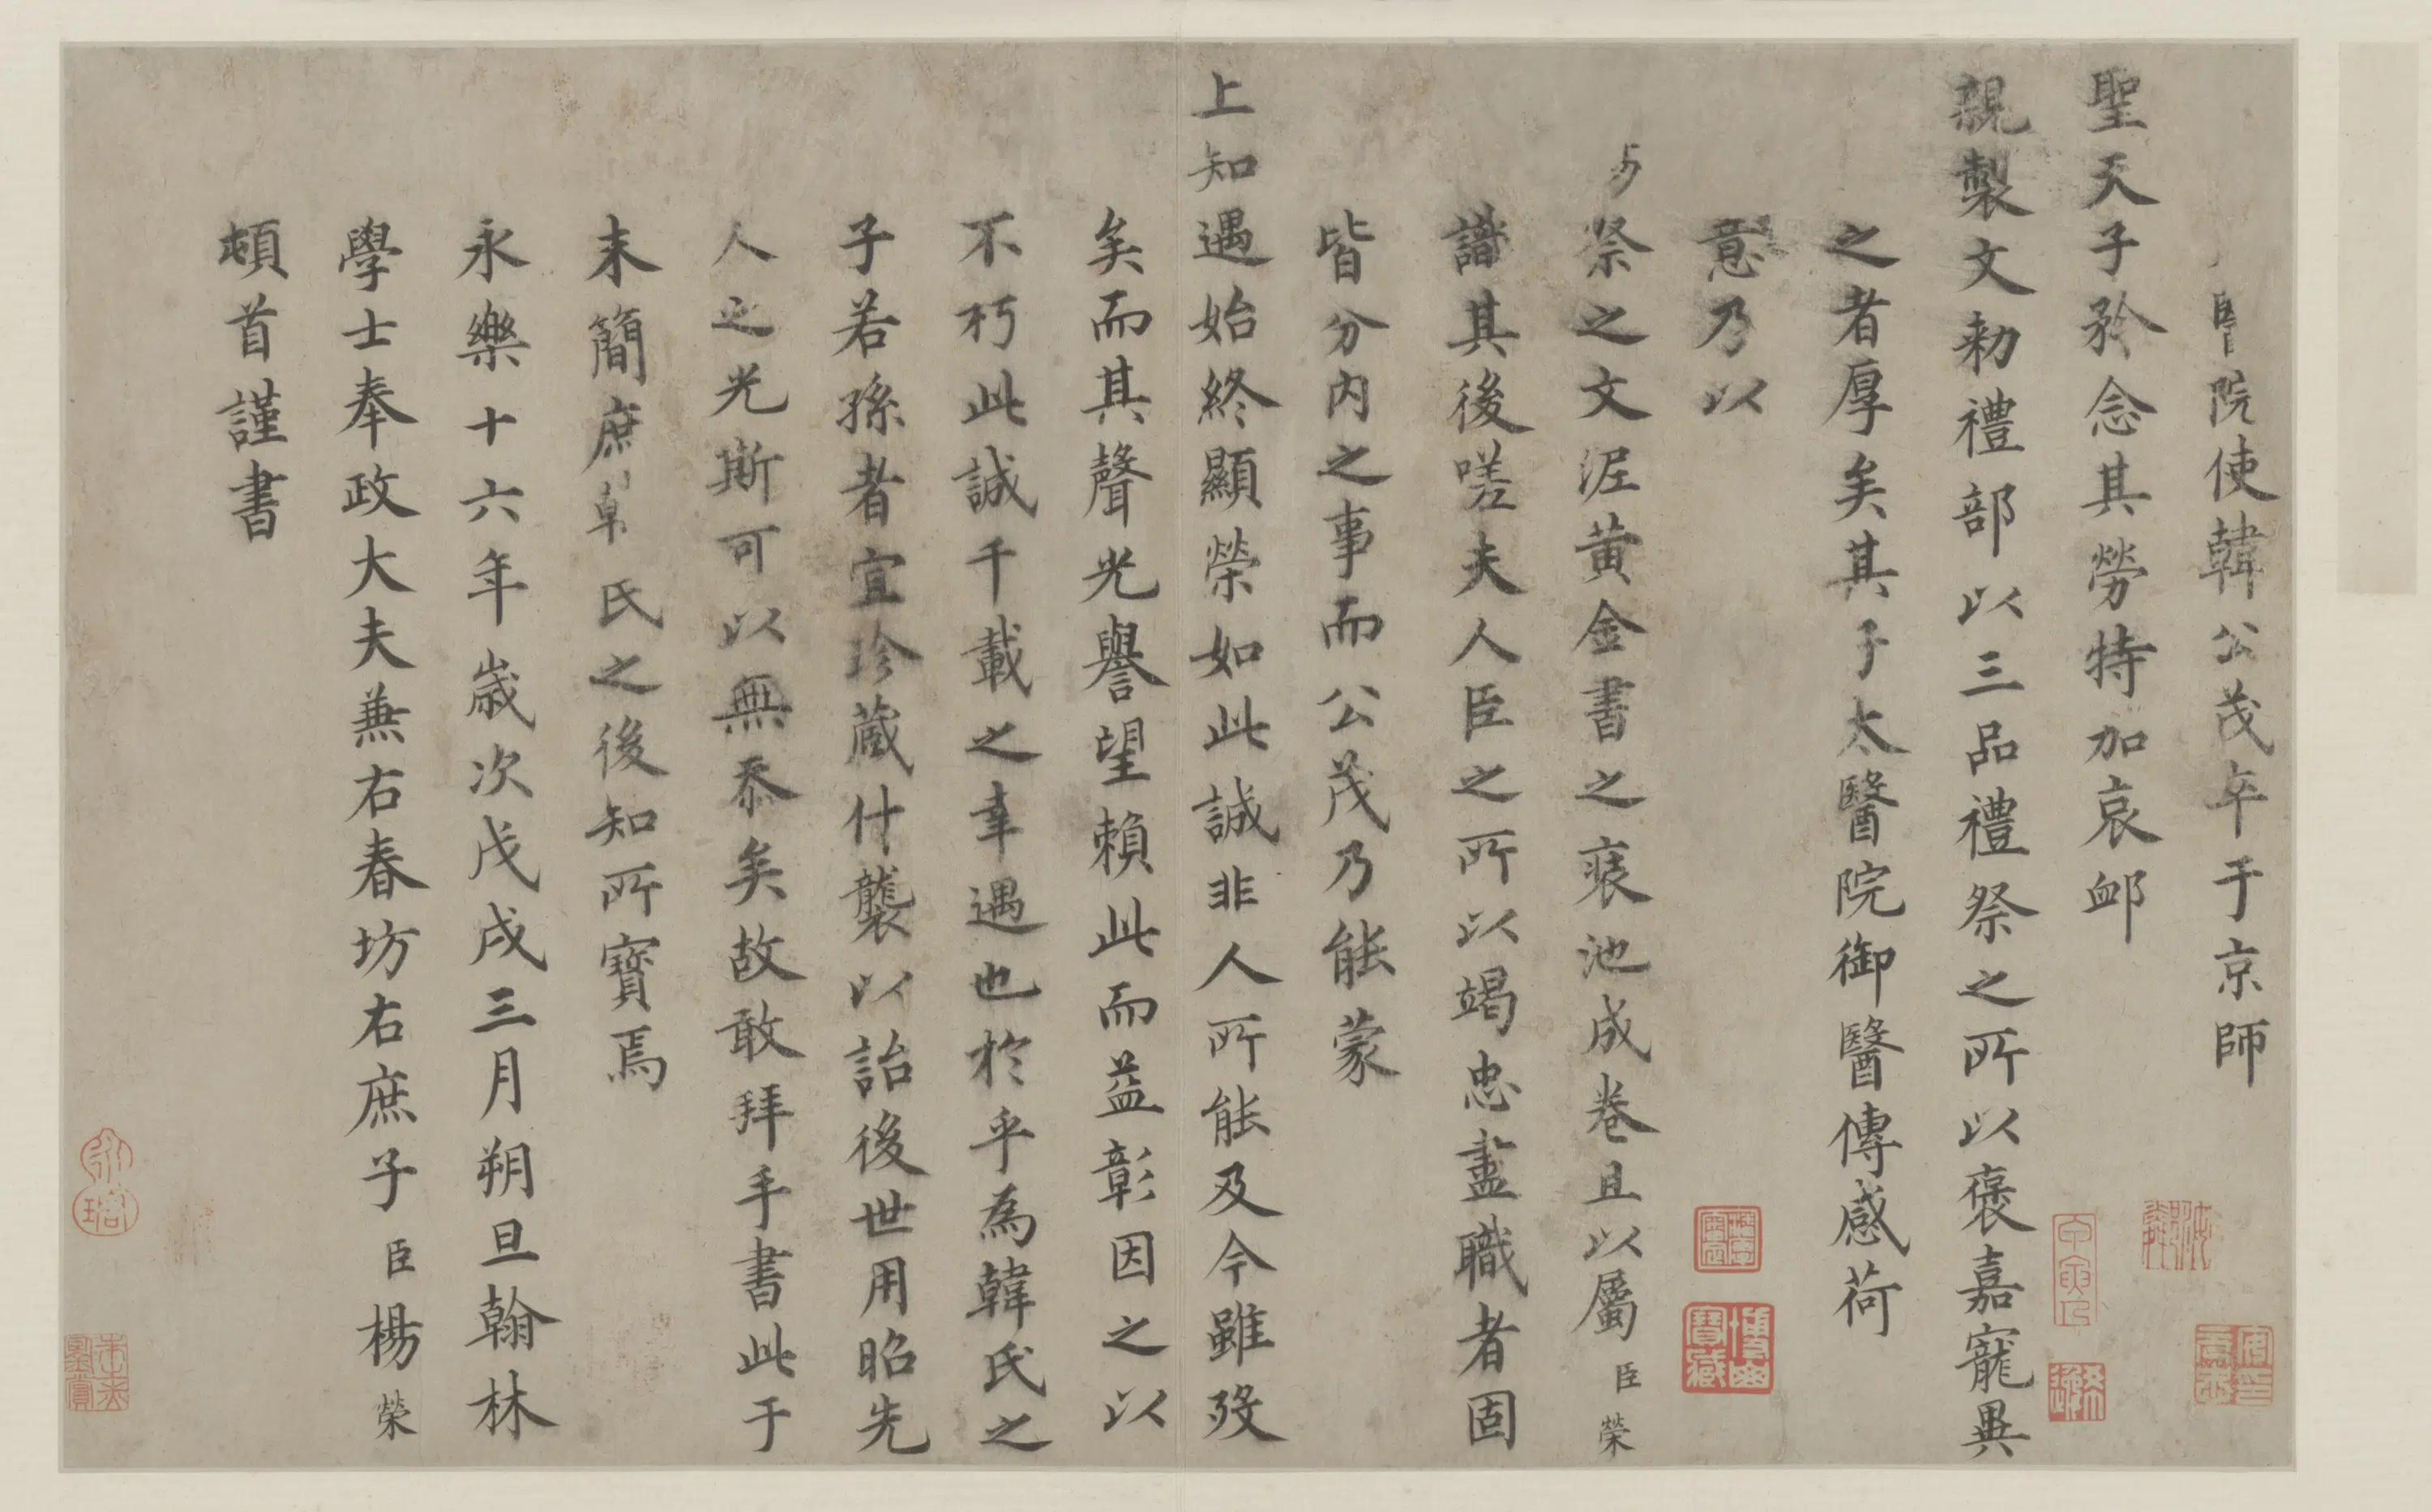 醫院使韓公茂卒于京師
聖天子矜念其勞特加哀卹
親製文勑禮部以三品禮祭之所以褒嘉寵異
之者厚矣其子太醫院御醫傳感荷
意乃以
祭之文泥黃金書之裝池成卷且以屬臣榮
譜其後嗟夫人臣之所以竭忠盡職者固
皆分內之事而公茂乃能蒙
上知遇始終顯榮如此誠非人所能及今雖歿
矣而其聲光譽望賴此而益彰因之以
不朽此誠千載之幸遇也於乎為韓氏之
子若孫者宜珍藏什襲以詒後世用昭先
人之光斯可以無忝矣故敢拜手書此于
末簡庶氏之後知所寶焉
永樂十六年歲次戊戌三月朔旦翰林
學士奉政大夫兼右春坊右庶子臣楊榮
頓首謹書